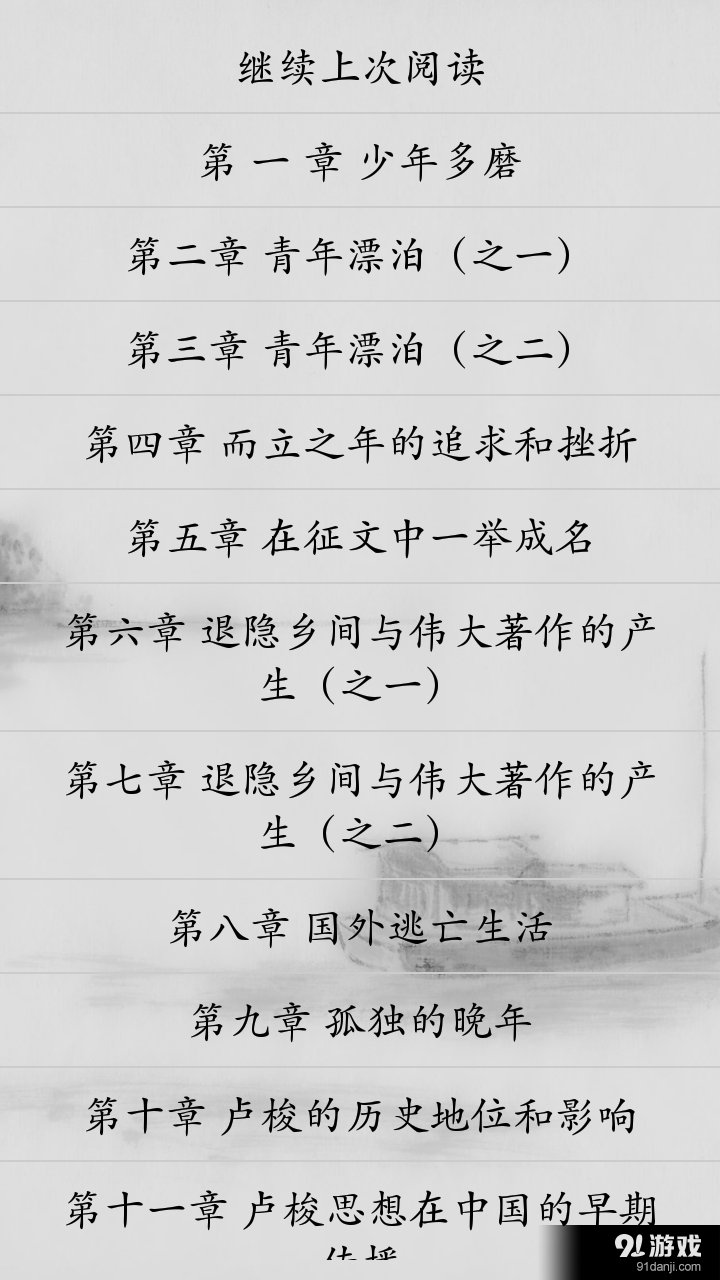 继续上次阅读
第一章 少年多磨
第二章 青年漂泊（之一）
第三章 青年漂泊（之二）
第四章 而立之年的追求和挫折
第五章 在征文中一举成名
第六章 退隐乡间与伟大著作的产
生（之一）
第七章 退隐乡间与伟大著作的产
生（之二）
第八章 国外逃亡生活
第九章 孤独的晚年
第十章 卢梭的历史地位和影响
第十一章 卢梭思想在中国的早期
传播
91游戏
91danji.com